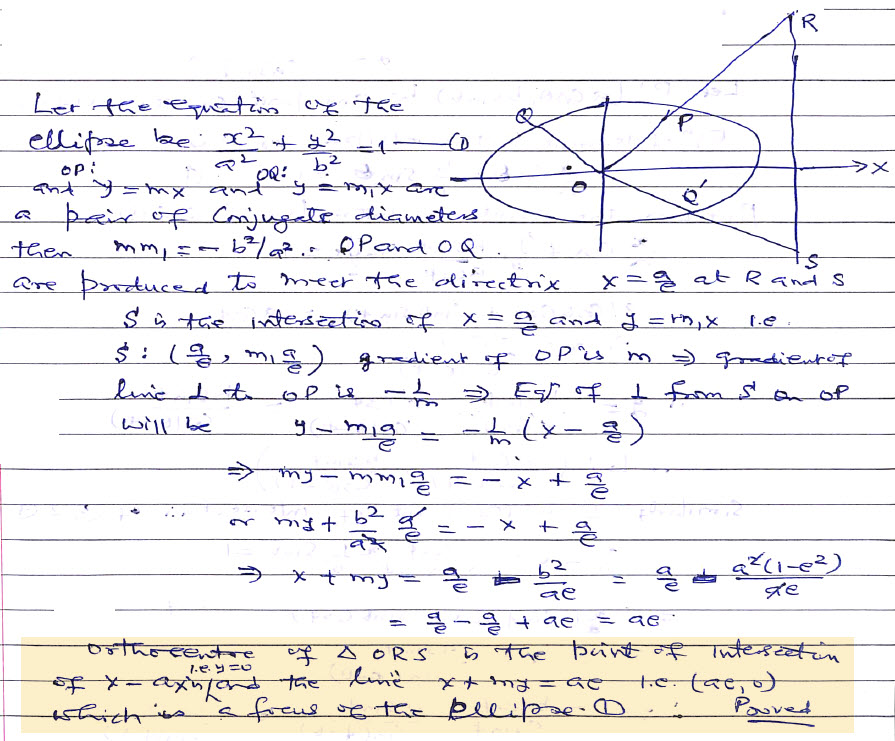 R
Let the equation of the
ellipse be x²/a² + y²/b² = 1 —— ①
Q
P
OP: OQ:
and y = mx and y = m₁x are
O
X
Q′
a pair of Conjugate diameters
then mm₁ = - b²/a² ∴ OP and OQ
S
are produced to meet the directrix x = a/e at R and S
S is the intersection of x = a/e and y = m₁x i.e.
S: (a/e, m₁a/e) gradient of OP is m ⇒ gradient of
line ⊥ to OP is -1/m ⇒ Eqⁿ of ⊥ from S on OP
will be y - m₁a/e = -1/m (x - a/e)
⇒ my - mm₁ a/e = - x + a/e
or my + b²/a² a/e = - x + a/e
⇒ x + my = a/e - b²/ae = a/e - a²(1-e²)/ae
= a/e - a/e + ae = ae
Orthocentre of △ ORS is the point of intersection
i.e. y=0
of x-axis and the line x + my = ae i.e. (ae, 0)
which is a focus of the ellipse ① ∴ Proved